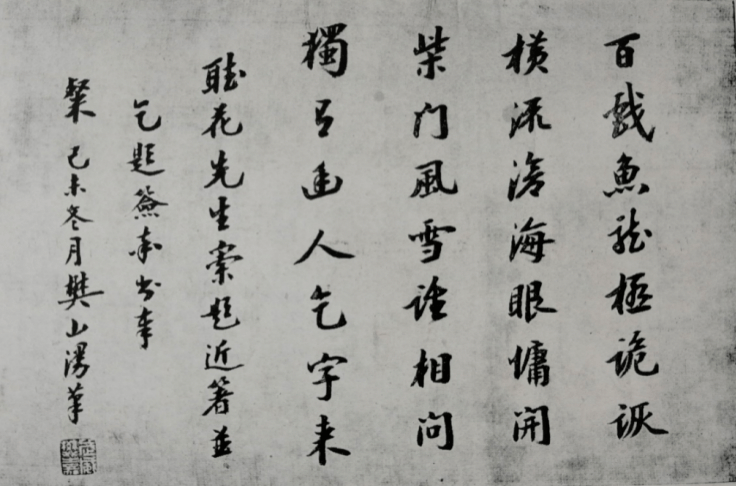 百戲魚龍極詭詼
橫流滄海眼慵開
柴門風雪誰相問
獨有幽人乞字來
聽花先生索題近著並
乞題簽率書奉
粲 己未冬月樊山漫筆